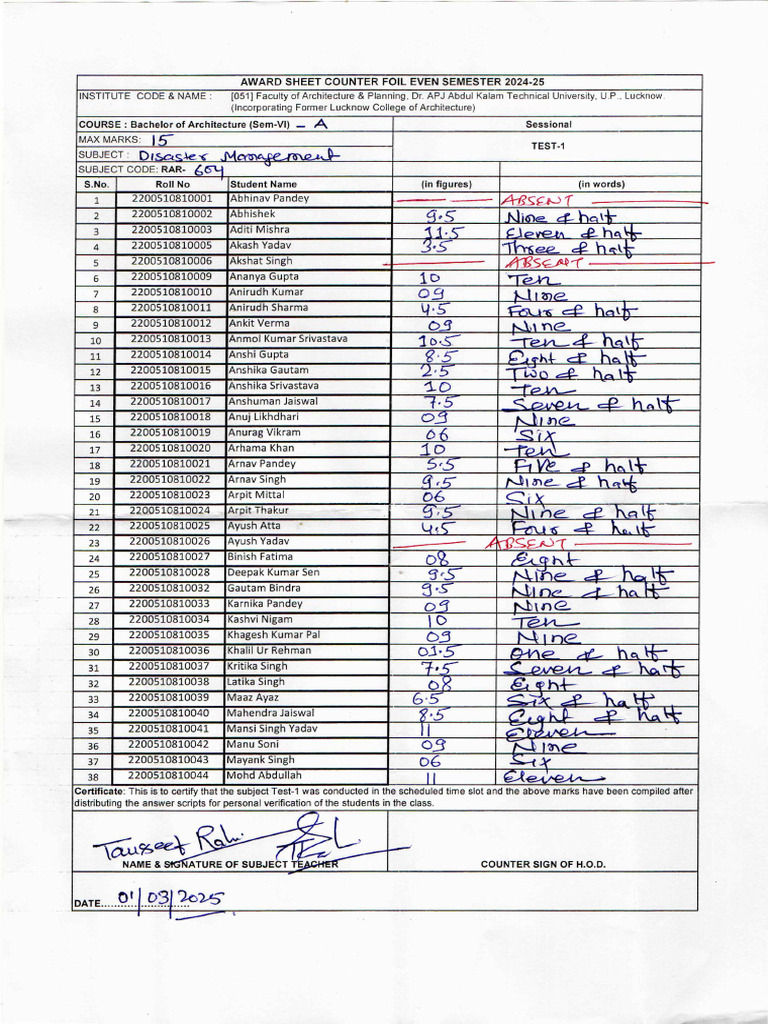 AWARD SHEET COUNTER FOIL EVEN SEMESTER 2024-25
INSTITUTE CODE & NAME : [051] Faculty of Architecture & Planning, Dr. APJ Abdul Kalam Technical University, U.P., Lucknow.
(Incorporating Former Lucknow College of Architecture)
COURSE : Bachelor of Architecture (Sem-VI) - A Sessional
MAX MARKS: 15 TEST-1
SUBJECT : Disaster Management
SUBJECT CODE: RAR- 604
S.No. Roll No Student Name (in figures) (in words)
1 2200510810001 Abhinav Pandey ABSENT
2 2200510810002 Abhishek 9.5 Nine & half
3 2200510810003 Aditi Mishra 11.5 Eleven & half
4 2200510810005 Akash Yadav 3.5 Three & half
5 2200510810006 Akshat Singh ABSENT
6 2200510810009 Ananya Gupta 10 Ten
7 2200510810010 Anirudh Kumar 09 Nine
8 2200510810011 Anirudh Sharma 4.5 Four & half
9 2200510810012 Ankit Verma 09 Nine
10 2200510810013 Anmol Kumar Srivastava 10.5 Ten & half
11 2200510810014 Anshi Gupta 8.5 Eight & half
12 2200510810015 Anshika Gautam 2.5 Two & half
13 2200510810016 Anshika Srivastava 10 Ten
14 2200510810017 Anshuman Jaiswal 7.5 Seven & half
15 2200510810018 Anuj Likhdhari 09 Nine
16 2200510810019 Anurag Vikram 06 Six
17 2200510810020 Arhama Khan 10 Ten
18 2200510810021 Arnav Pandey 5.5 Five & half
19 2200510810022 Arnav Singh 9.5 Nine & half
20 2200510810023 Arpit Mittal 06 Six
21 2200510810024 Arpit Thakur 9.5 Nine & half
22 2200510810025 Ayush Atta 4.5 Four & half
23 2200510810026 Ayush Yadav ABSENT
24 2200510810027 Binish Fatima 08 Eight
25 2200510810028 Deepak Kumar Sen 9.5 Nine & half
26 2200510810032 Gautam Bindra 9.5 Nine & half
27 2200510810033 Karnika Pandey 09 Nine
28 2200510810034 Kashvi Nigam 10 Ten
29 2200510810035 Khagesh Kumar Pal 09 Nine
30 2200510810036 Khalil Ur Rehman 01.5 One & half
31 2200510810037 Kritika Singh 7.5 Seven & half
32 2200510810038 Latika Singh 08 Eight
33 2200510810039 Maaz Ayaz 6.5 Six & half
34 2200510810040 Mahendra Jaiswal 8.5 Eight & half
35 2200510810041 Mansi Singh Yadav 11 Eleven
36 2200510810042 Manu Soni 09 Nine
37 2200510810043 Mayank Singh 06 Six
38 2200510810044 Mohd Abdullah 11 Eleven
Certificate: This is to certify that the subject Test-1 was conducted in the scheduled time slot and the above marks have been compiled after
distributing the answer scripts for personal verification of the students in the class.
NAME & SIGNATURE OF SUBJECT TEACHER COUNTER SIGN OF H.O.D.
DATE...................... 01/03/2025